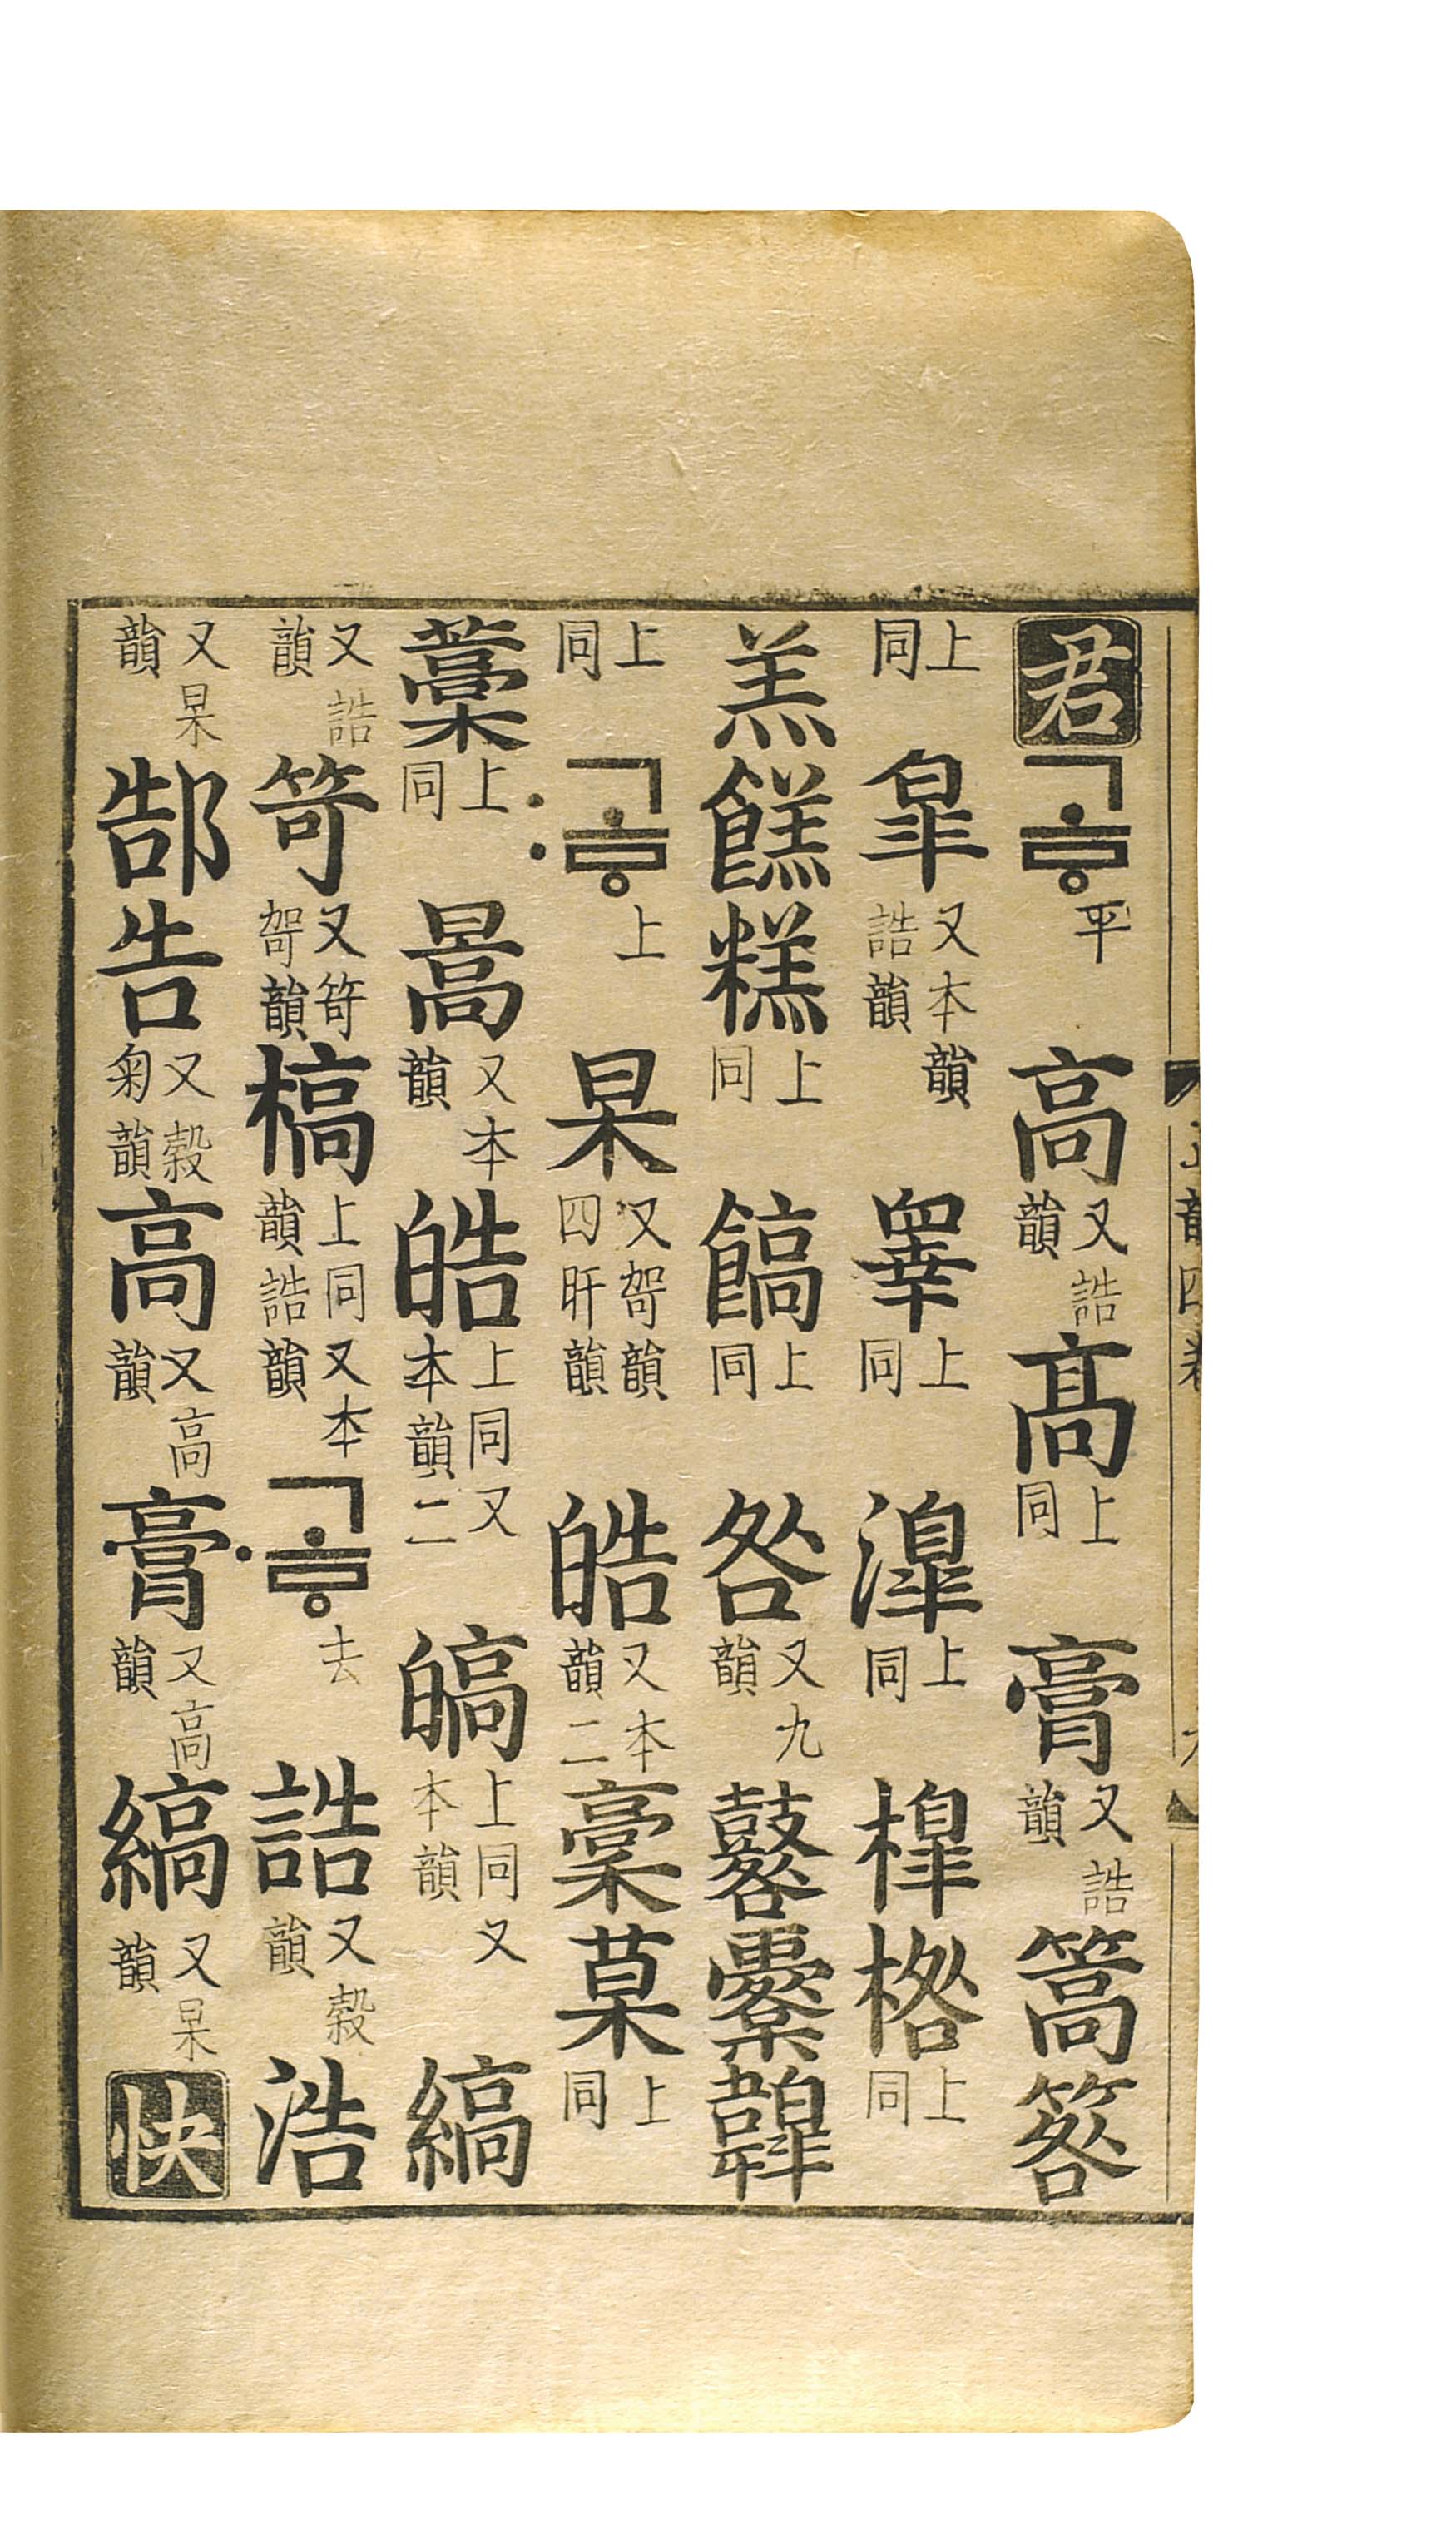 君고ᇢ平高又誥韻髙上同膏又誥韻篙
上同皐又本韻誥韻睾上同滜上同槹上同
羔餻糕上同餶上同咎又九韻鼛櫜韟
上同〯고ᇢ上杲又哿韻四旰韻皓又本韻二稾菒上同
藁上同暠又本韻皓上同又本韻二皜上同又本韻縞
又誥韻笴又笴哿韻槁上同又本韻誥韻〮고ᇢ去誥又穀韻浩
又杲韻郜告又穀菊韻高又高韻膏又高韻縞又杲韻快